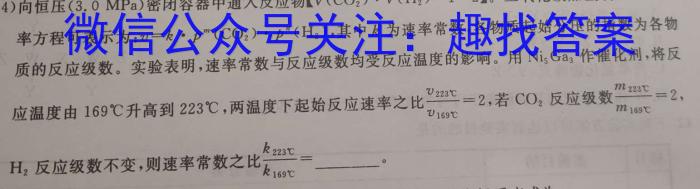 4)向恒压(3.0 MPa)密闭容器中通入反应物
微信公众号关注：趣找答案
率方程
为各物
质的反应级数。实验表明,速率常数与反应级数均受反应温度的影响。用 Ni₅Ga₃ 作催化剂,将反
应温度由 169℃升高到 223℃,两温度下起始反应速率之比 v₂₂₃℃/v₁₆₉℃=2,若 CO₂ 反应级数 m₂₂₃℃/m₁₆₉℃=2,
H₂ 反应级数不变,则速率常数之比 k₂₂₃℃/k₁₆₉℃=________。